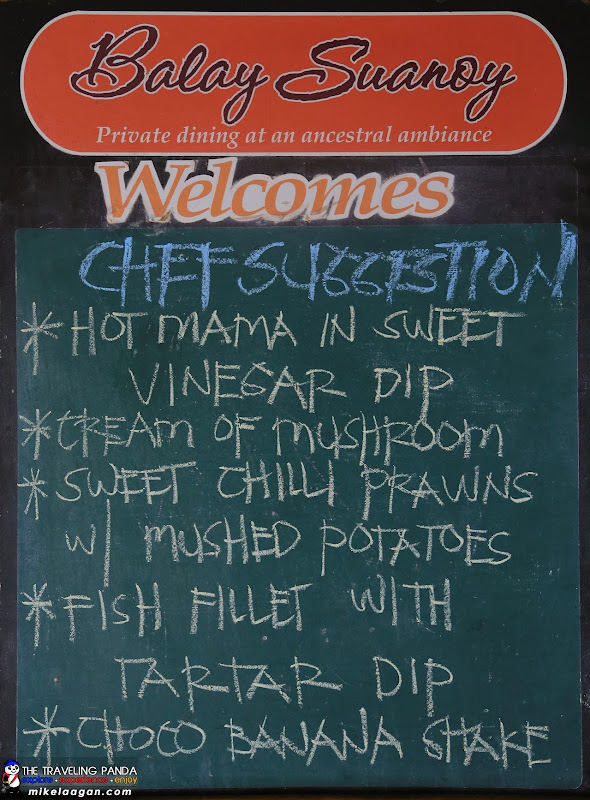 Balay Suanoy
Private dining at an ancestral ambiance
Welcomes
CHEF SUGGESTION
* HOT MAMA IN SWEET
VINEGAR DIP
* CREAM OF MUSHROOM
* SWEET CHILLI PRAWNS
W/ MUSHED POTATOES
* FISH FILLET WITH
TARTAR DIP
* CHOCO BANANA SHAKE
THE TRAVELING PANDA
explore • experience • enjoy
mikelaagan.com